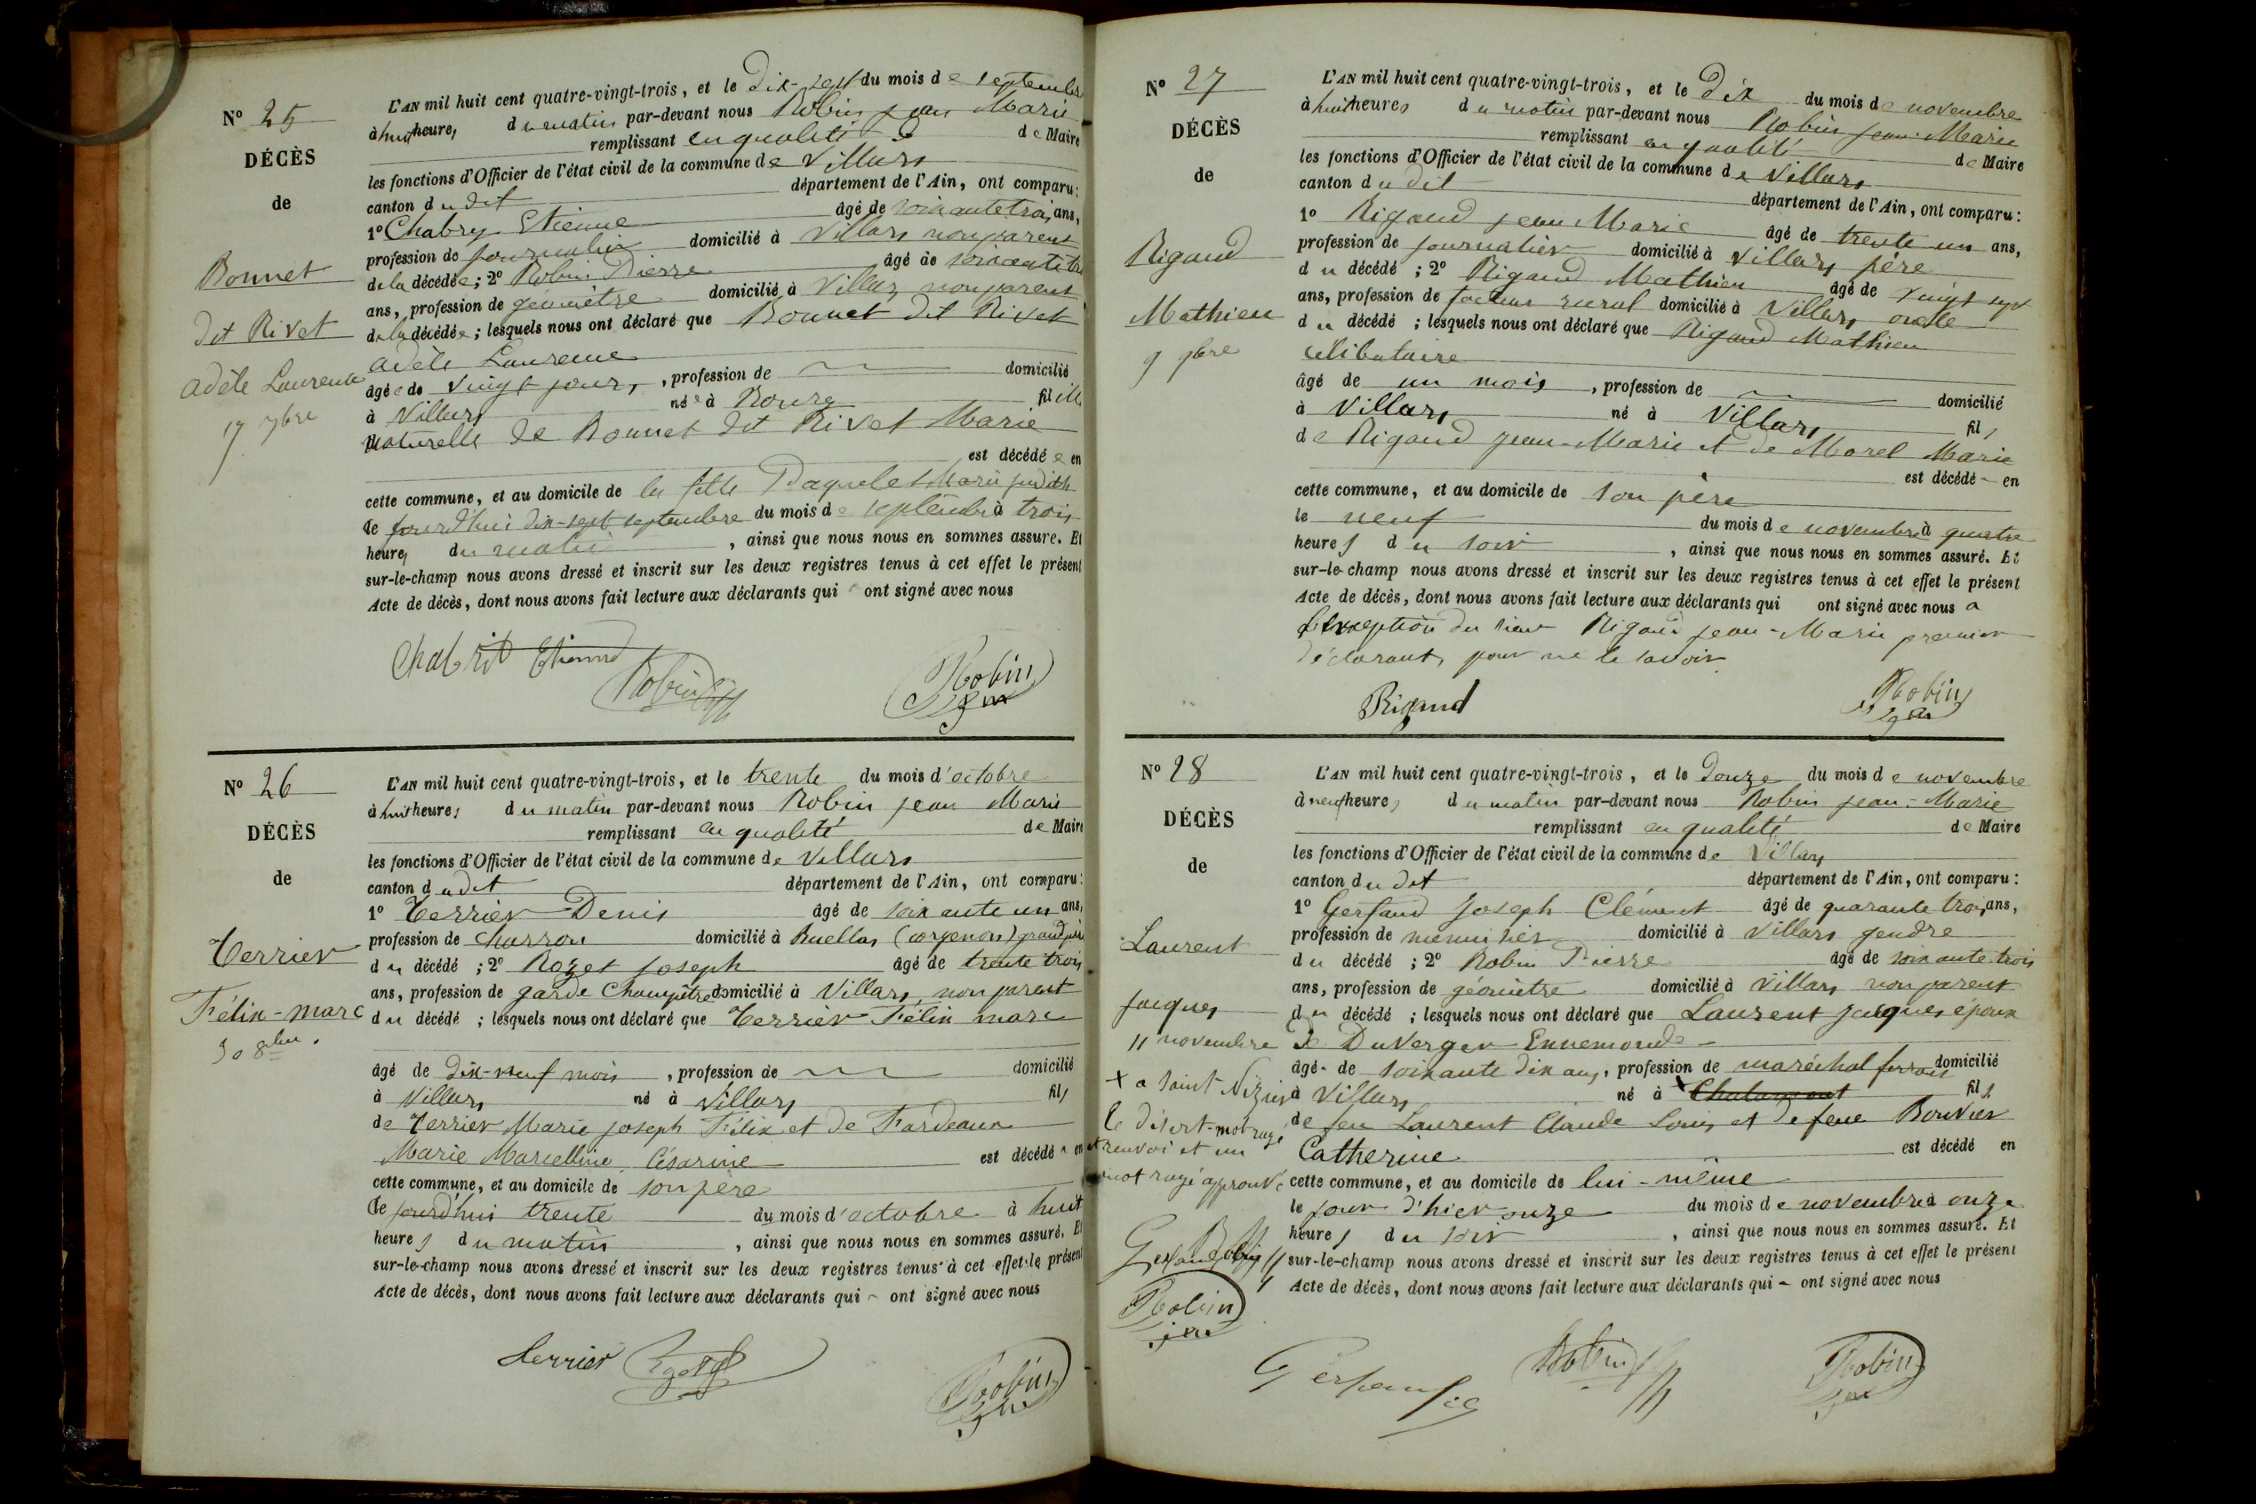 N° 25
DÉCÈS
de
Bonnet
dit Rivet
Adèle Laurence
17 7bre
L'AN mil huit cent quatre-vingt-trois, et le dix-sept du mois de septembre
à huit heures du matin par-devant nous Robin Jean Marie
remplissant en qualité de Maire
les fonctions d'Officier de l'état civil de la commune de Villars
canton dudit département de l'Ain, ont comparu:
1° Chabry Etienne âgé de soixante trois ans,
profession de journalier domicilié à Villars non parent
de la décédée; 2° Robin Pierre âgé de soixante trois
ans, profession de géomètre domicilié à Villars, non parent
de la décédée; lesquels nous ont déclaré que Bonnet dit Rivet
adèle Laurence
âgée de vingt jours, profession de domicilié
à Villars née à Bourg fille
naturelle de Bonnet dit Rivet Marie
est décédée en
cette commune, et au domicile de la fille Paquelet Marie judith
le jourd'hui dix-sept septembre du mois de septembre à trois
heures du matin, ainsi que nous nous en sommes assuré. Et
sur-le-champ nous avons dressé et inscrit sur les deux registres tenus à cet effet le présent
Acte de décès, dont nous avons fait lecture aux déclarants qui ont signé avec nous
Chabrit Etienne Robin Robin
N° 26
DÉCÈS
de
Terrier
Félix-marc
30 8bre.
L'AN mil huit cent quatre-vingt-trois, et le trente du mois d'octobre
à huit heures du matin par-devant nous Robin jean Marie
remplissant en qualité de Maire
les fonctions d'Officier de l'état civil de la commune de Villars
canton dudit département de l'Ain, ont comparu:
1° Terrier Denis âgé de soixante un ans,
profession de charron domicilié à Buellas (corgenon) grand père
du décédé; 2° Rozet joseph âgé de trente trois
ans, profession de garde Champêtre domicilié à Villars, non parent
du décédé; lesquels nous ont déclaré que Terrier Félix marc
âgé de dix-neuf mois, profession de domicilié
à Villars né à Villars fils
de Terrier Marie joseph Félix et de Fardeaux
Marie Marcelline Césarine est décédé en
cette commune, et au domicile de son père
le jourd'hui trente du mois d'octobre à huit
heures du matin, ainsi que nous nous en sommes assuré. Et
sur-le-champ nous avons dressé et inscrit sur les deux registres tenus à cet effet le présent
Acte de décès, dont nous avons fait lecture aux déclarants qui ont signé avec nous
Terrier Robin
N° 27
DÉCÈS
de
Rigaud
Mathieu
9 9bre
L'AN mil huit cent quatre-vingt-trois, et le dix du mois de novembre
à huit heures du matin par-devant nous Robin Jean-Marie
remplissant en qualité de Maire
les fonctions d'Officier de l'état civil de la commune de Villars
canton dudit département de l'Ain, ont comparu:
1° Rigaud jean Marie âgé de trente un ans,
profession de journalier domicilié à Villars père
du décédé; 2° Rigaud Mathieu âgé de vingt sept
ans, profession de facteur rural domicilié à Villars oncle
du décédé; lesquels nous ont déclaré que Rigaud Mathieu
célibataire
âgé de un mois, profession de domicilié
à Villars né à Villars fils
de Rigaud jean-Marie et de Morel Marie
est décédé en
cette commune, et au domicile de son père
le neuf du mois de novembre à quatre
heures du soir, ainsi que nous nous en sommes assuré. Et
sur-le-champ nous avons dressé et inscrit sur les deux registres tenus à cet effet le présent
Acte de décès, dont nous avons fait lecture aux déclarants qui ont signé avec nous a
l'exception du sieur Rigaud jean-Marie premier
déclarant, pour ne le savoir
Rigaud Robin
N° 28
DÉCÈS
de
Laurent
jacques
11 novembre
L'AN mil huit cent quatre-vingt-trois, et le douze du mois de novembre
à neuf heures du matin par-devant nous Robin jean-Marie
remplissant en qualité de Maire
les fonctions d'Officier de l'état civil de la commune de Villars
canton dudit département de l'Ain, ont comparu:
1° Gerfaud Joseph Clément âgé de quarante trois ans,
profession de menuisier domicilié à Villars gendre
du décédé; 2° Robin Pierre âgé de soixante trois
ans, profession de géomètre domicilié à Villars non parent
du décédé; lesquels nous ont déclaré que Laurent jacques époux
de Duverger Ennemonde
âgé de soixante dix ans, profession de maréchal ferrant domicilié
à Villars né à x Chalamont fils
de feu Laurent Claude Louis et de feue Bouvier
Catherine est décédé en
cette commune, et au domicile de lui-même
le jour d'hier onze du mois de novembre à onze
heures du soir, ainsi que nous nous en sommes assuré. Et
sur-le-champ nous avons dressé et inscrit sur les deux registres tenus à cet effet le présent
Acte de décès, dont nous avons fait lecture aux déclarants qui ont signé avec nous
x a saint-Nizier
le désert-mot rayé
renvoi et un
mot rayé approuvé
Gerfaud Robin
Robin
Gerfaud Robin Robin